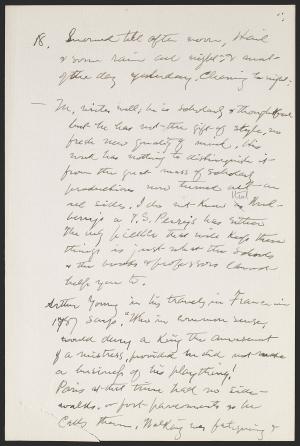 18. Snowed till after noon, Hail
& some rain all night & most
of the day yesterday. Clearing to-night.
— M. writes well, he is scholarly & thoughtful
but he has not the gift of style, no
fresh new quality of mind. His
work has nothing to distinguish it
from the great mass of scholarly
productions now turned out on
all sides. I do not know that
or T.S. Perry has either
The only that will keep these
things is just what the schools
& the books & professors cannot
help you to.
Arthur Young in his travels in France in
1787 says, "Who in common sense,
would deny a King the amusement
of a mistress, provided he did not make
a business of his plaything!
Paris at that time had no side-
walks, or foot-pavements as he
calls them. Walking was fatiguing &